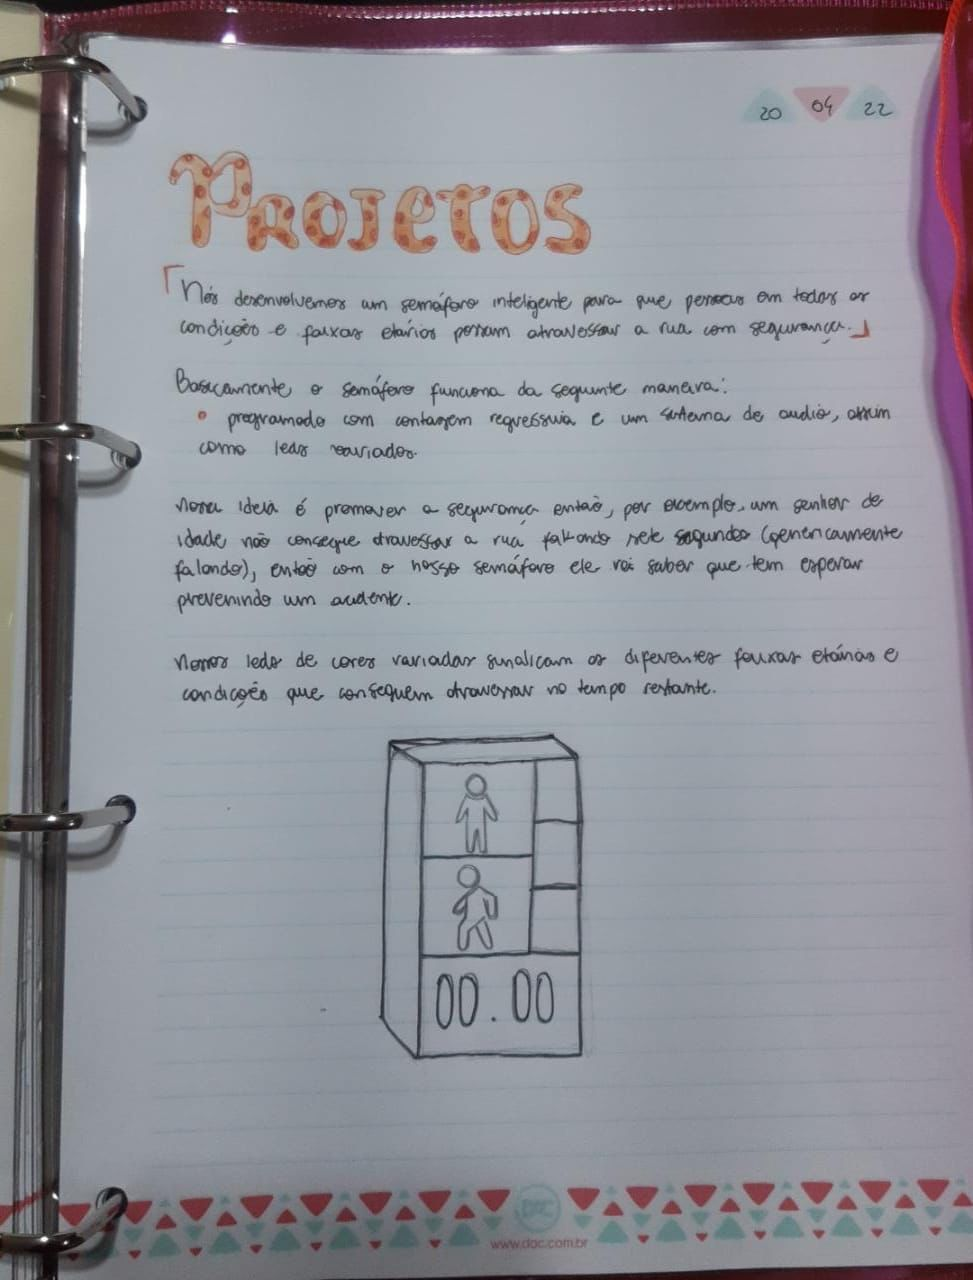 20 04 22
PROJETOS
Nós desenvolvemos um semáforo inteligente para que pessoas em todas as
condições e faixas etários possam atravessar a rua com segurança.
Basicamente o semáforo funciona da seguinte maneira:
• programado com contagem regressiva e um sistema de audio, assim
como leds variados.
Nossa ideia é promover a segurança então, por exemplo, um senhor de
idade não consegue atravessar a rua faltando sete segundos (genericamente
falando), então com o nosso semáforo ele vai saber que tem esperar
prevenindo um acidente.
Nossos leds de cores variadas sinalizam as diferentes faixas etárias e
condições que conseguem atravessar no tempo restante.
00.00
DAC
www.dac.com.br